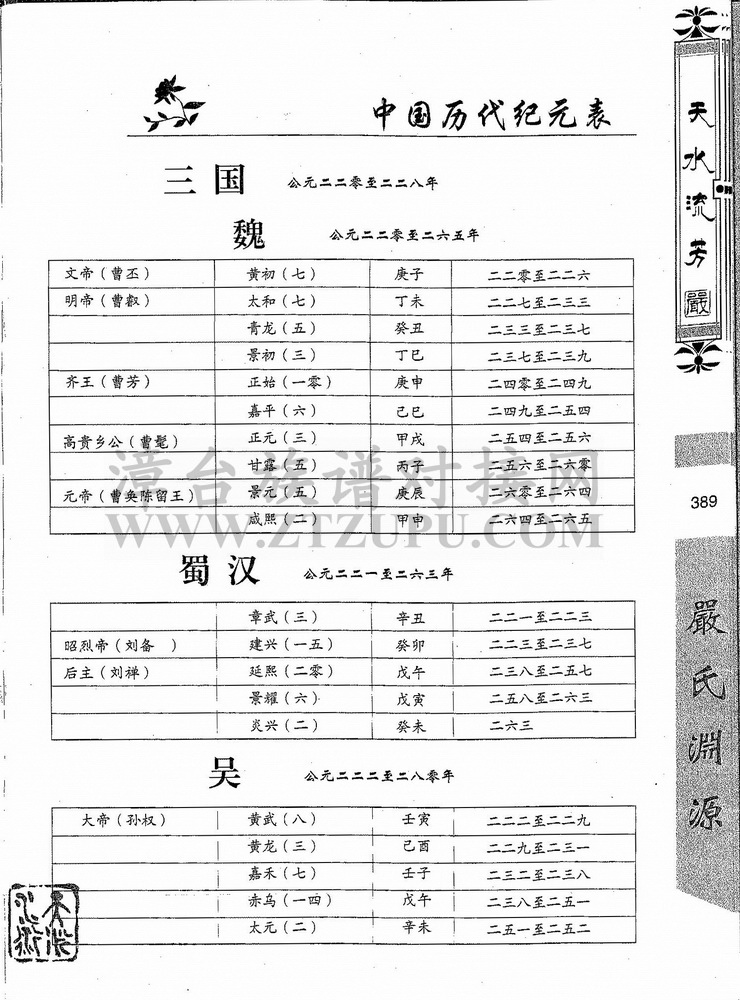 中国历代纪元表
三国 公元二二零至二二八年
魏 公元二二零至二六五年
文帝（曹丕） 黄初（七） 庚子 二二零至二二六
明帝（曹叡） 太和（七） 丁未 二二七至二三三
青龙（五） 癸丑 二三三至二三七
景初（三） 丁巳 二三七至二三九
齐王（曹芳） 正始（一零） 庚申 二四零至二四九
嘉平（六） 己巳 二四九至二五四
高贵乡公（曹髦） 正元（三） 甲戌 二五四至二五六
甘露（五） 丙子 二五六至二六零
元帝（曹奂陈留王） 景元（五） 庚辰 二六零至二六四
咸熙（二） 甲申 二六四至二六五
漳台族谱对接网
WWW.ZTZUPU.COM
蜀汉 公元二二一至二六三年
章武（三） 辛丑 二二一至二二三
昭烈帝（刘备 ） 建兴（一五） 癸卯 二二三至二三七
后主（刘禅） 延熙（二零） 戊午 二三八至二五七
景耀（六） 戊寅 二五八至二六三
炎兴（二） 癸未 二六三
吴 公元二二二至二八零年
大帝（孙权） 黄武（八） 壬寅 二二二至二二九
黄龙（三） 己酉 二二九至二三一
嘉禾（七） 壬子 二三二至二三八
赤乌（一四） 戊午 二三八至二五一
太元（二） 辛未 二五一至二五二
天水流芳
嚴
389
嚴氏淵源